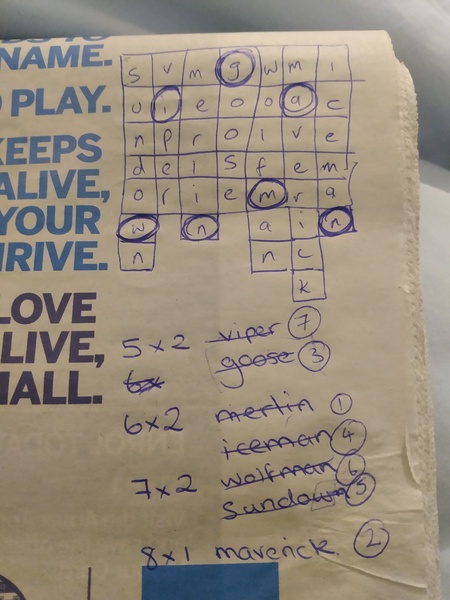 NAME.
PLAY.
KEEPS
ALIVE,
YOUR
HRIVE.
LOVE
LIVE,
s v m g w m i
u i e o o a c
n p r o l v e
d e l s f e m
o r i e m r a
w n a i n
n n c
k
5x2 viper 7
goose 3
6x
6x2 merlin 1
iceman 4
7x2 wolfman 6
Sundown 5
8x1 maverick. 2